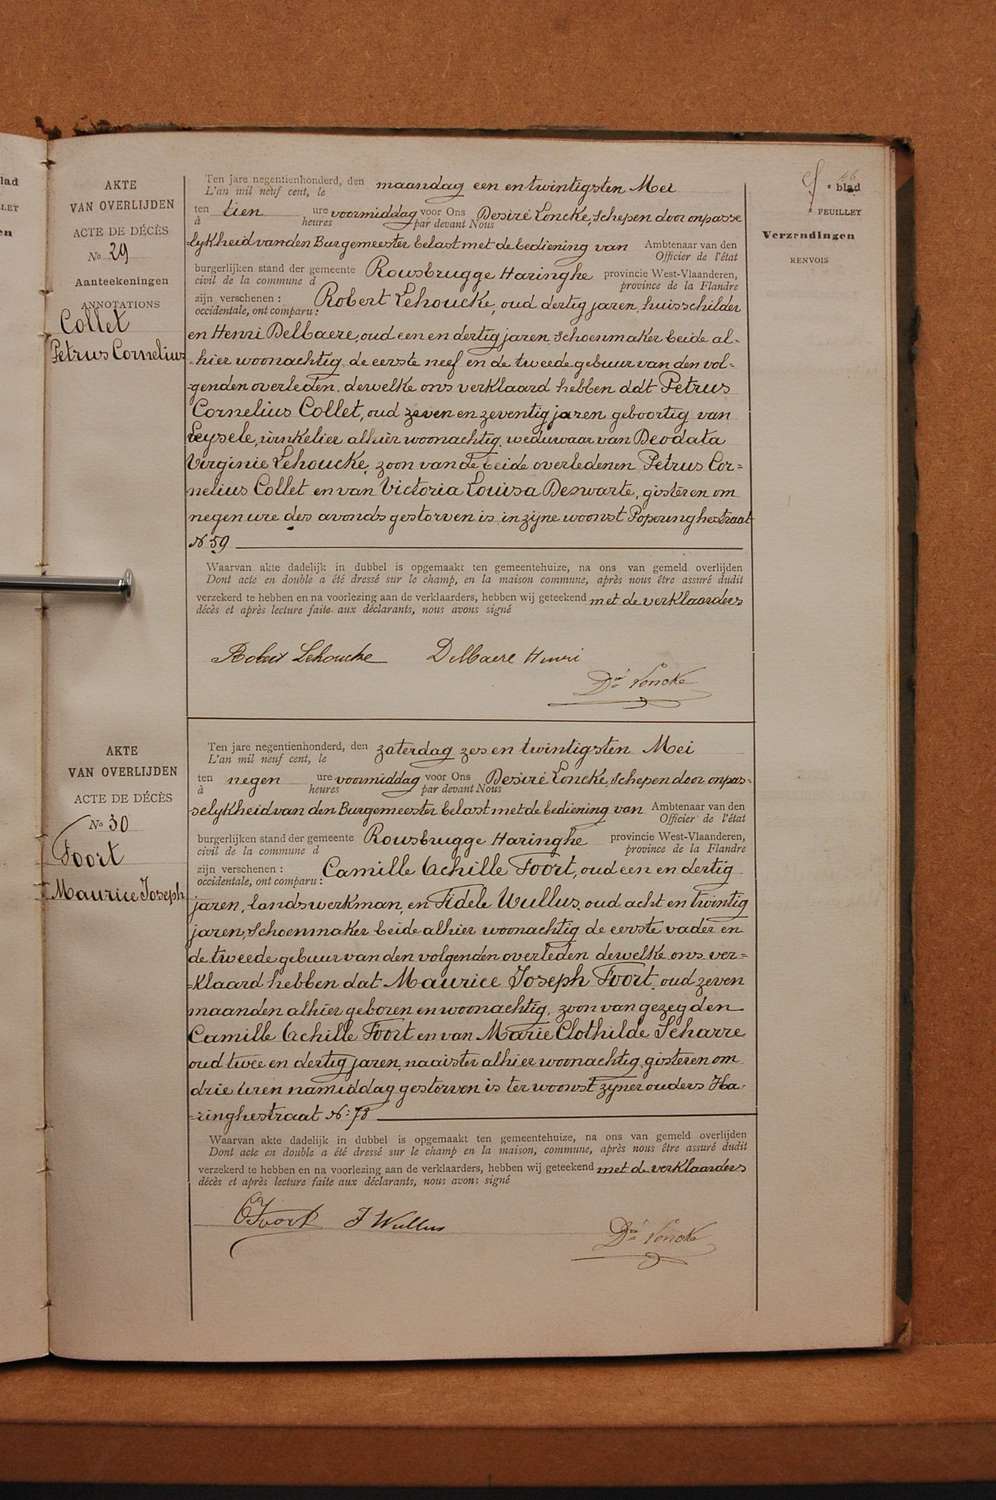 lad
LET
en
16
e blad
FEUILLET
Verzendingen
RENVOIS
AKTE
VAN OVERLIJDEN
ACTE DE DÉCÈS
No 29
Aanteekeningen
ANNOTATIONS
Collet
Petrus Cornelius
Ten jare negentienhonderd, den maandag een en twintigsten Mei
L'an mil neuf cent, le
ten tien ure voormiddag voor Ons Desiré Loncke, schepen door onpasse
à heures par devant Nous
lykheid van den Burgemeester belast met de bediening van Ambtenaar van den
Officier de l'état
burgerlijken stand der gemeente Rousbrugge Haringhe provincie West-Vlaanderen,
civil de la commune d province de la Flandre
zijn verschenen : Robert Lehoucke, oud dertig jaren, huisschilder
occidentale, ont comparu :
en Henri Delbaere, oud een en dertig jaren, schoenmaker beide al-
-hier woonachtig, de eerste neef en de tweede gebuur van den vol-
-genden overleden, dewelke ons verklaard hebben dat Petrus
Cornelius Collet, oud zeven en zeventig jaren geboortig van
Leysele, winkelier alhier woonachtig, weduwaar van Deodata
Virginie Lehoucke, zoon van de beide overledenen Petrus Cor-
nelius Collet en van Victoria Louisa Deswarte, gisteren om
negen ure des avonds gestorven is in zijne woonst Poperinghestraat
No 59
Waarvan akte dadelijk in dubbel is opgemaakt ten gemeentehuize, na ons van gemeld overlijden
Dont acte en double a été dressé sur le champ, en la maison commune, après nous être assuré dudit
verzekerd te hebben en na voorlezing aan de verklaarders, hebben wij geteekend met de verklaarders
décès et après lecture faite aux déclarants, nous avons signé
Robert Lehoucke Delbaere Henri
Dré Loncke
AKTE
VAN OVERLIJDEN
ACTE DE DÉCÈS
No 30
Foort
Maurice Joseph
Ten jare negentienhonderd, den zaterdag zes en twintigsten Mei
L'an mil neuf cent, le
ten negen ure voormiddag voor Ons Desiré Loncke, schepen door onpas-
à heures par devant Nous
selykheid van den Burgemeester belast met de bediening van Ambtenaar van den
Officier de l'état
burgerlijken stand der gemeente Rousbrugge Haringhe provincie West-Vlaanderen,
civil de la commune d province de la Flandre
zijn verschenen : Camille Achille Foort, oud een en dertig
occidentale, ont comparu :
jaren, landswerkman, en Fidele Wullus, oud acht en twintig
jaren, schoenmaker beide alhier woonachtig de eerste vader en
de tweede gebuur van den volgenden overleden dewelke ons ver-
-klaard hebben dat Maurice Joseph Foort, oud zeven
maanden alhier geboren en woonachtig, zoon van gezegden
Camille Achille Foort en van Marie Clothilde Scharre
oud twee en dertig jaren, naaister alhier woonachtig, gisteren om
drie uren namiddag gestorven is ter woonst zyner ouders Ha-
-ringhestraat No: 78
Waarvan akte dadelijk in dubbel is opgemaakt ten gemeentehuize, na ons van gemeld overlijden
Dont acte en double a été dressé sur le champ en la maison, commune, après nous être assuré dudit
verzekerd te hebben en na voorlezing aan de verklaarders, hebben wij geteekend met de verklaarders
décès et après lecture faite aux déclarants, nous avons signé
C Foort F Wullus
Dré Loncke